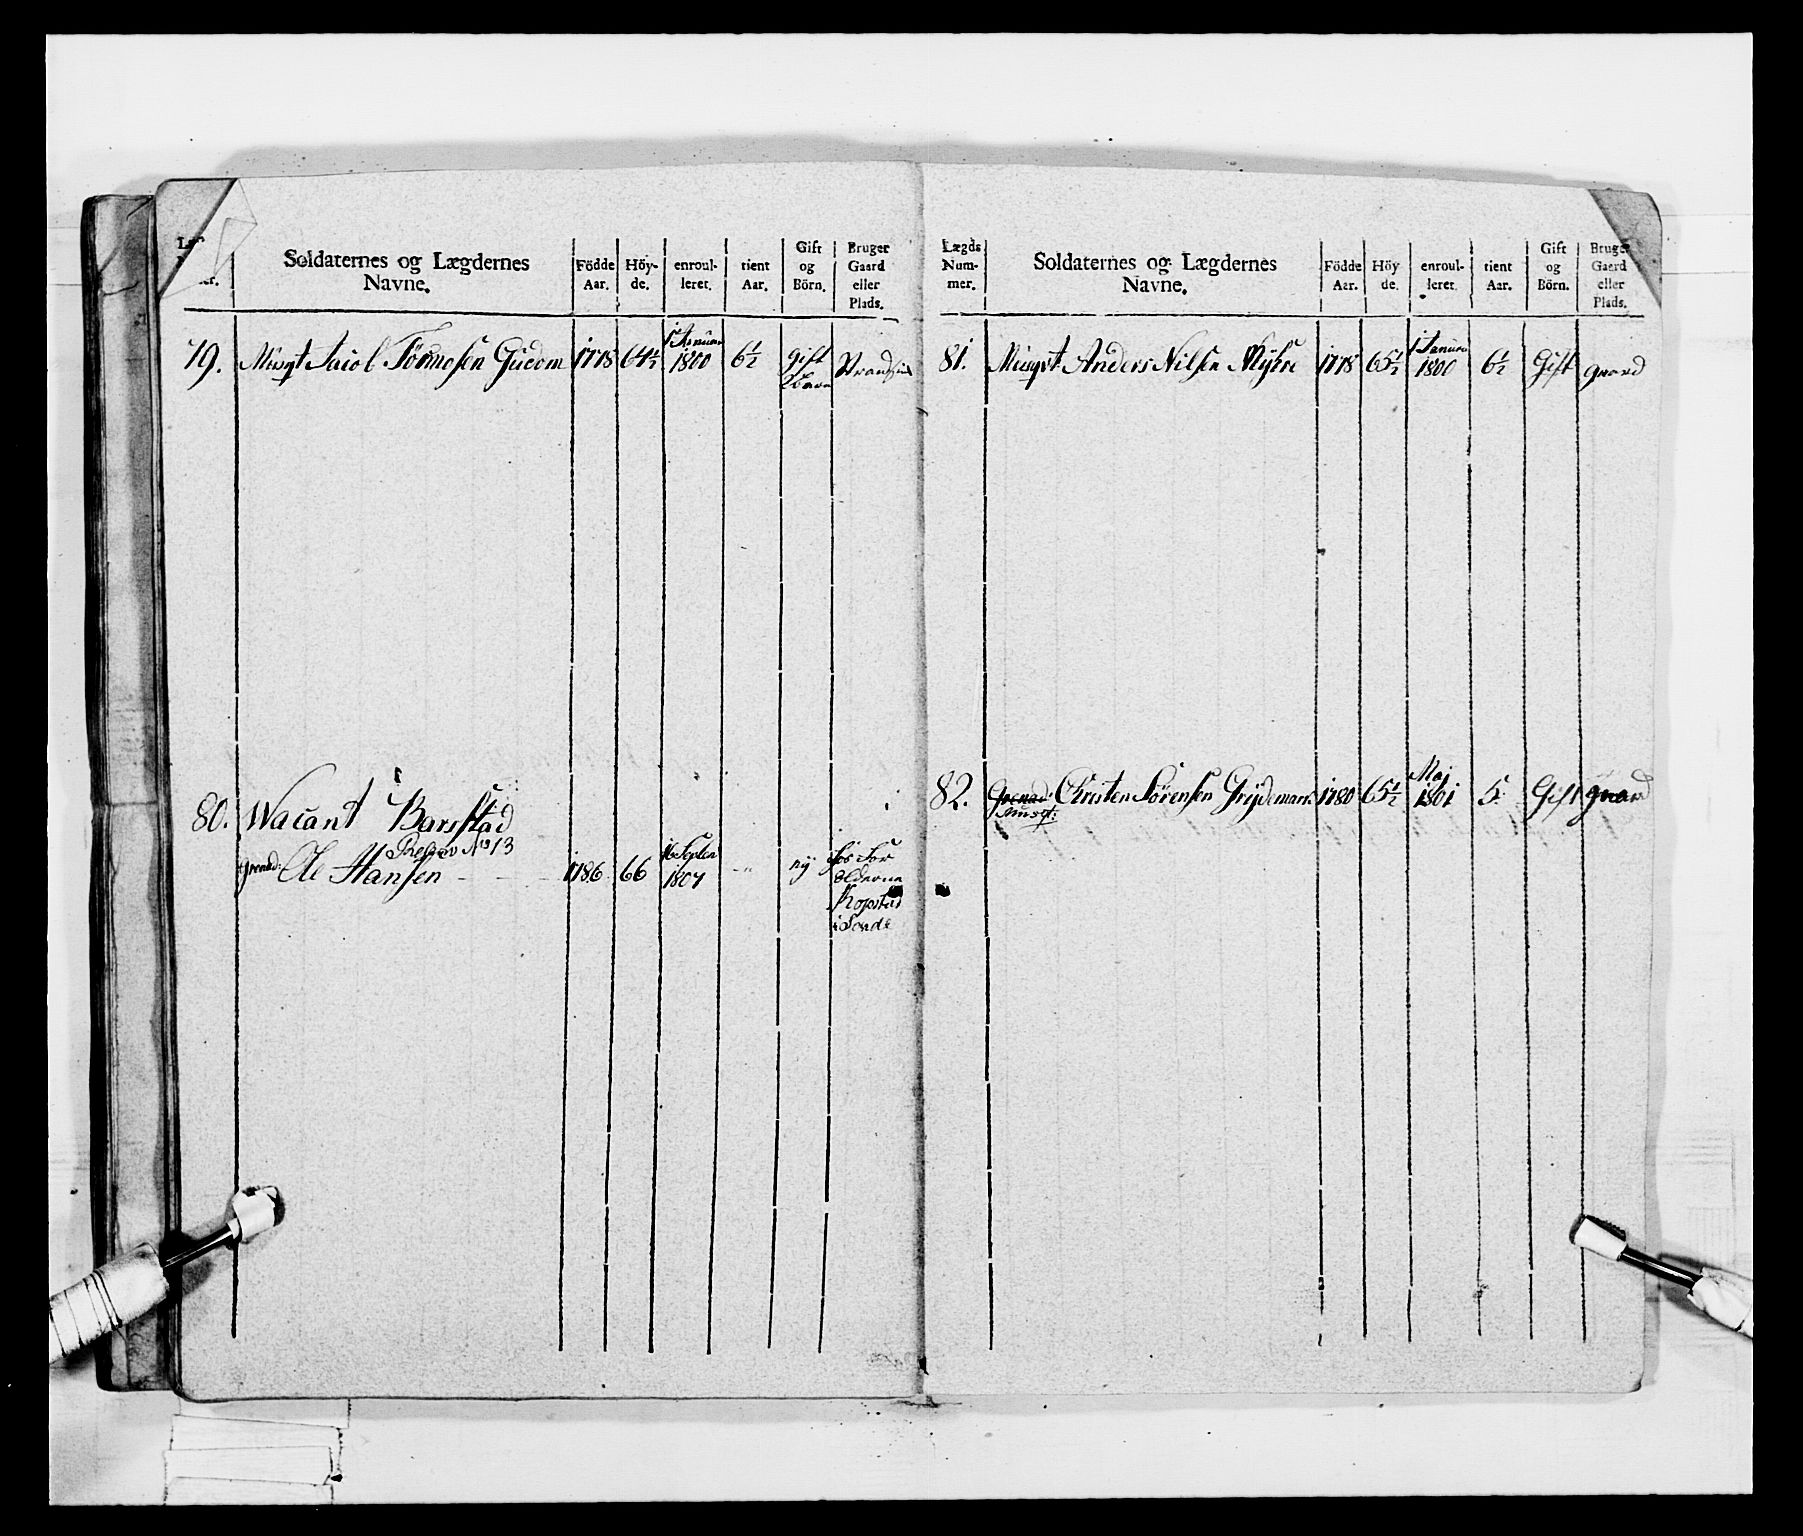 Soldaternes og Lægdernes
Navne.
Födde
Aar.
Höy-
de.
enroul-
leret.
tient
Aar.
Gift
og
Börn.
Bruger
Gaard
eller
Plads.
79. Musqt Jacob Tormosen Gudom 1778 64½ 1 Januar 1800 6½ gift
2 barn
80. Wacant Barstad
No 13
Grenad: Ole Hansen - - - 1786 66 16 Septen
1807 - " ny hos For
ældrene
Kopstad
i Sande
Lægds
Num-
mer.
Soldaternes og Lægdernes
Navne.
Födde
Aar.
Höy
de.
enroul-
leret.
tient
Aar.
Gift
og
Börn.
Bruger
Gaard
eller
Plads.
81. Musqt. Anders Nilsen Myhre 1778 65½ 1 Januar
1800 6½ Gift gaard
82. Grenad: Christen Sörensen Grydemark 1780 65½ Maj
1801 5. Gift gaard
Musqt: